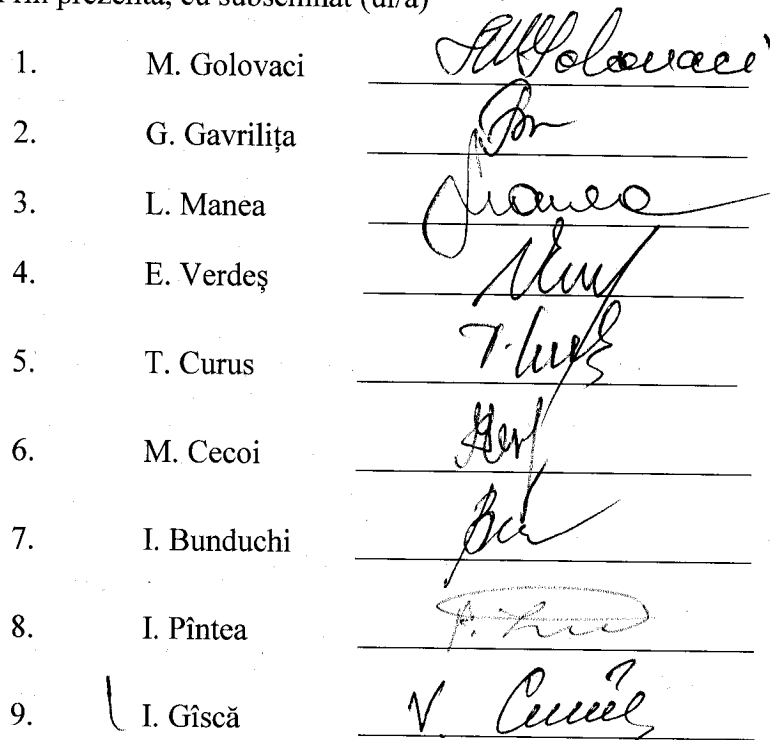 prezenta, eu subsemnat (ul/a)
1. M. Golovaci Golovaci
2. G. Gavrilița
3. L. Manea Manea
4. E. Verdeș
5. T. Curus
6. M. Cecoi
7. I. Bunduchi
8. I. Pîntea
9. I. Gîscă V.